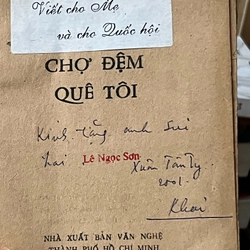 Viết cho Mẹ
và cho Quốc hội
CHỢ ĐỆM
QUÊ TÔI
Kính tặng anh Sui
Lê Ngọc Sơn
Xuân Tân Tỵ
2001
Khai
NHÀ XUẤT BẢN VĂN NGHỆ
THÀNH PHỐ HỒ CHÍ MINH